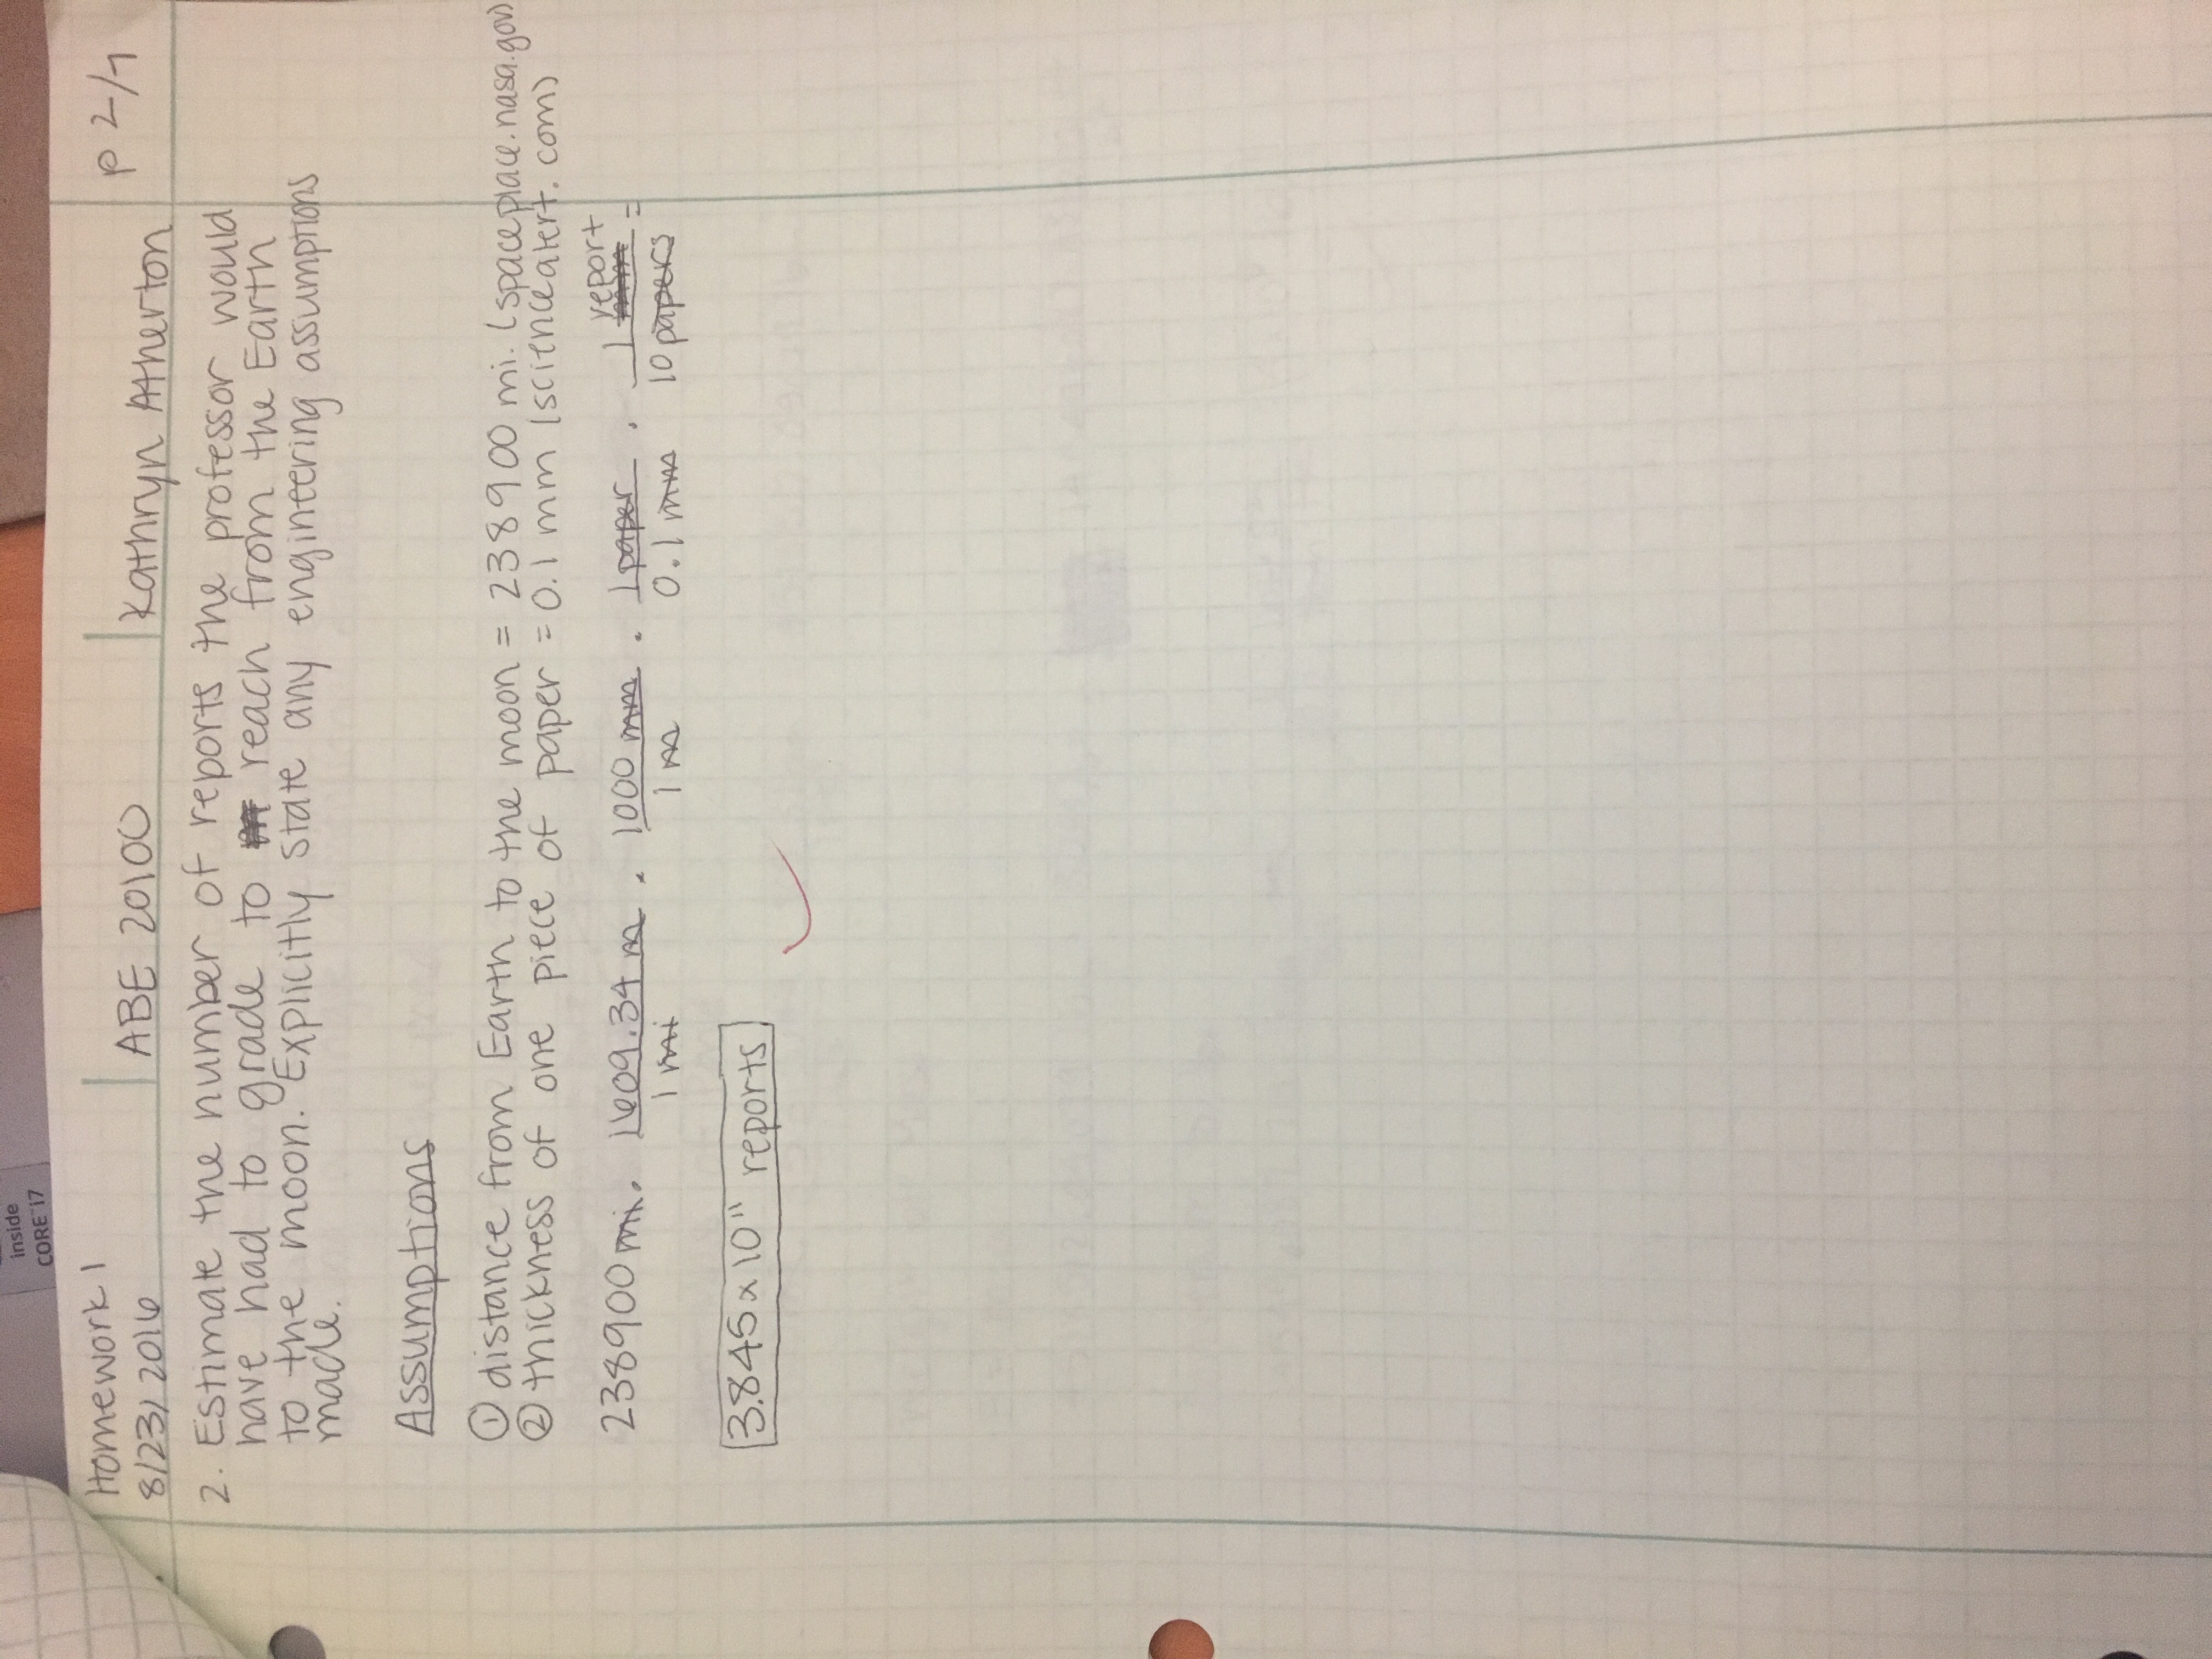 inside
CORE i7
Homework 1
8/23/2016
ABE 20100
Kathryn Atherton
p 2/7
2. Estimate the number of reports the professor would
have had to grade to reach from the Earth
to the moon. Explicitly state any engineering assumptions
made.
Assumptions
① distance from Earth to the moon = 238900 mi. (spaceplace.nasa.gov)
② thickness of one piece of paper = 0.1 mm (sciencealert.com)
238900 mi. · 1609.34 m / 1 mi · 1000 mm / 1 m · 1 paper / 0.1 mm · 1 report / 10 papers =
3.845 x 10¹¹ reports